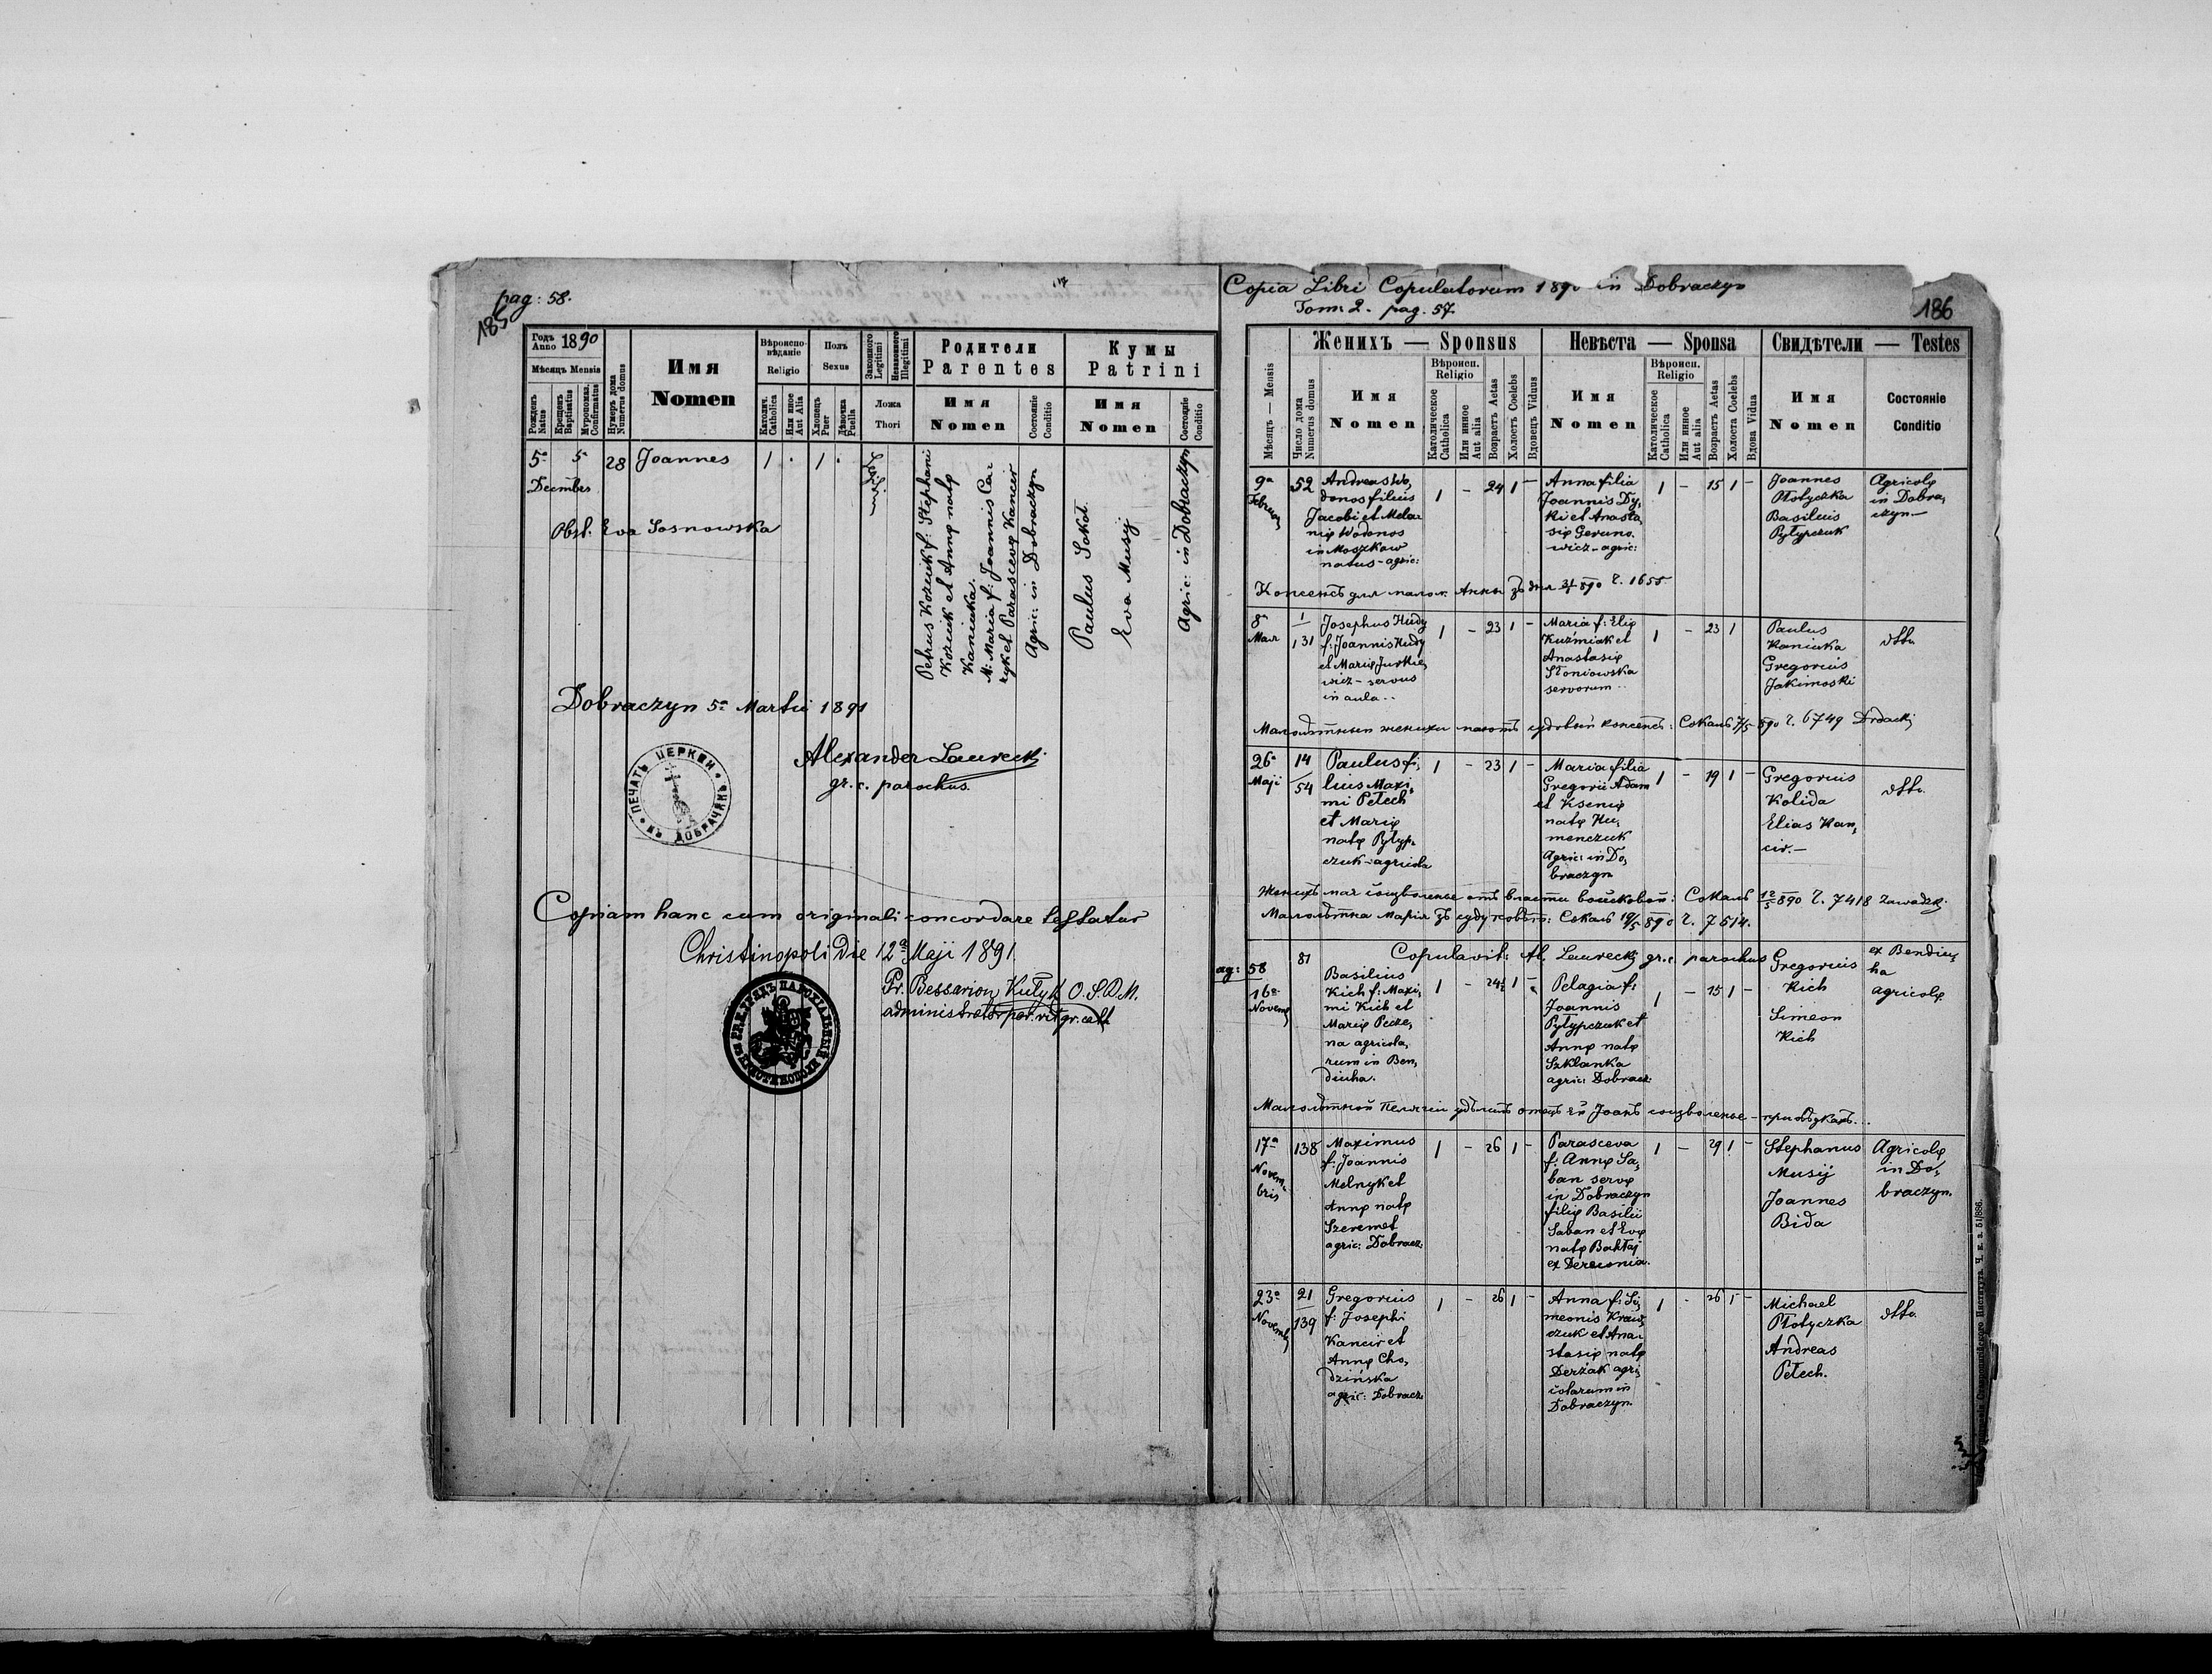 pag: 58.
185
Годъ Anno 1890
Мѣсяцъ Mensis
Рожденъ Natus
Крещенъ Baptisatus
Муропомаз. Confirmatus
Нумеръ дома Numerus domus
Имя
Nomen
Вѣроисповѣданіе
Religio
Католич. Catholica
Или иное Aut Alia
Полъ
Sexus
Хлопецъ Puer
Дѣвочка Puella
Законного Legitimi
Незаконного Illegitimi
Ложа
Thori
Родители
Parentes
Имя
Nomen
Состояніе Conditio
Кумы
Patrini
Имя
Nomen
Состояніе Conditio
5ª 5ª 28 Joannes 1 . 1 .
Decembris
Obst. Eva Sosnowska
Petrus Koziuk f: Stephani
Koziuk et Annę natę
Kaniuka.
M: Maria f: Joannis
et Parascevę Kancir
Agric: in Dobraczyn
Paulus Sokoł.
Eva Musij
Agric: in Dobraczyn
Dobraczyn 5ª Martii 1891
Alexander Laurecki
gr. c. parochus.
ПЕЧАТЬ ЦЕРКВИ ВЪ ДОБРАЧИНѢ
Copiam hanc cum originali concordare testatur
Christinopoli die 12ª Maji 1891.
Pr. Bessarion Kułyk O.S.B.M.
administrator par. rit. gr. cath
Copia Libri Copulatorum 1890 in Dobraczyn
Tom: 2. pag. 57.
186
Мѣсяцъ — Mensis
Число дома Numerus domus
Женихъ — Sponsus
Имя
Nomen
Вѣроисп. Religio
Католическое Catholica
Или инное Aut alia
Возрастъ Aetas
Холостъ Coelebs
Вдовецъ Vidus
Невѣста — Sponsa
Имя
Nomen
Вѣроисп. Religio
Католическое Catholica
Или инное Aut alia
Возрастъ Aetas
Холоста Coelebs
Вдова Vidua
Свидѣтели — Testes
Имя
Nomen
Состояніе
Conditio
9ª Februar
52
Andreas Wo,
donos filius
Jacobi et Mela,
nię Wodonos
in Moszkow
natus - agric:
1 - 24 1 -
Anna filia
Joannis Dy,
ki et Anasta,
się Geruno,
wicz - agric:
1 - 15 1 -
Joannes
Płotyczka
Basilius
Pyłypczuk
Agricolę
in Dobra,
czyn -
Консенсъ для малол. Анны зъ дня 890 ч. 1655
8ª Maii
1/131
Josephus Hudy
f: Joannis Hudy
et Marię Jurkie,
wicz - servus
in aula..
1 - 23 1 -
Maria f: Elię
Kuźmiak et
Anastasię
Słoniowska
servorum..
1 - 23 1 -
Paulus
Kaniuka
Gregorius
Jakimoski
dtto.
Сокаль 7/5 890 ч. 6749 Drdacki
26ª Maji
14/54
Paulus fi,
lius Maxi,
mi Petech
et Marię
natę Pyłyp,
czuk - agricola
1 - 23 1 -
Maria filia
Gregorii Adam
et Ksenię
natę Hu,
menczuk
Agric: in Do,
braczyn
1 - 19 1 -
Gregorius
Kolida
Elias Kan,
cir. -
dtto.
Женихъ мае соизволенье отъ власти войсковой: Сокаль 12/5 890 ч. 7418 Zawadzki
Малолѣтна Марія зъ суду повѣт: Сокаль 19/5 890 ч. 7614.
Copulavit: Al. Laurecki gr. c. parochus
pag: 58
16ª Novemb
81
Basilius
Kich f: Maxi,
mi Kich et
Marię Pecze,
na agricola,
rum in Ben,
diuha.
1 - 24½ 1 -
Pelagia f:
Joannis
Pyłypczuk et
Annę natę
Szklanka
agric: Dobracz:
1 - 15 1 -
Gregorius
Kich
Simeon
Kich
ex Bendiu,
ha
agricolę
Малолѣтной Пелагіи удѣливъ отецъ ей Іоанъ соизволенье -
17ª Novembris
138
Maximus
f: Joannis
Melnyk et
Annę natę
Szeremet
agric: Dobracz:
1 - 26 1 -
Parasceva
f: Annę Sa,
ban servę
in Dobraczyn
filię Basilii
Saban et Evę
natę Bakłaj
ex Dereconia.
1 - 29 1 -
Stephanus
Musij
Joannes
Bida
Agricolę
in Do,
braczyn.
23ª Novemb
21/139
Gregorius
f: Josephi
Kancir et
Annę Cho,
dzińska
agric: Dobracz:
1 - 26 1 -
Anna f: Si,
meonis Kraw,
czuk et Ana,
stasię natę
Derżak agri,
colarum in
Dobraczyn.
1 - 26 1 -
Michael
Płotyczka
Andreas
Petech.
dtto.
Ставропигійского Института. Ч. к. з. 51/886.